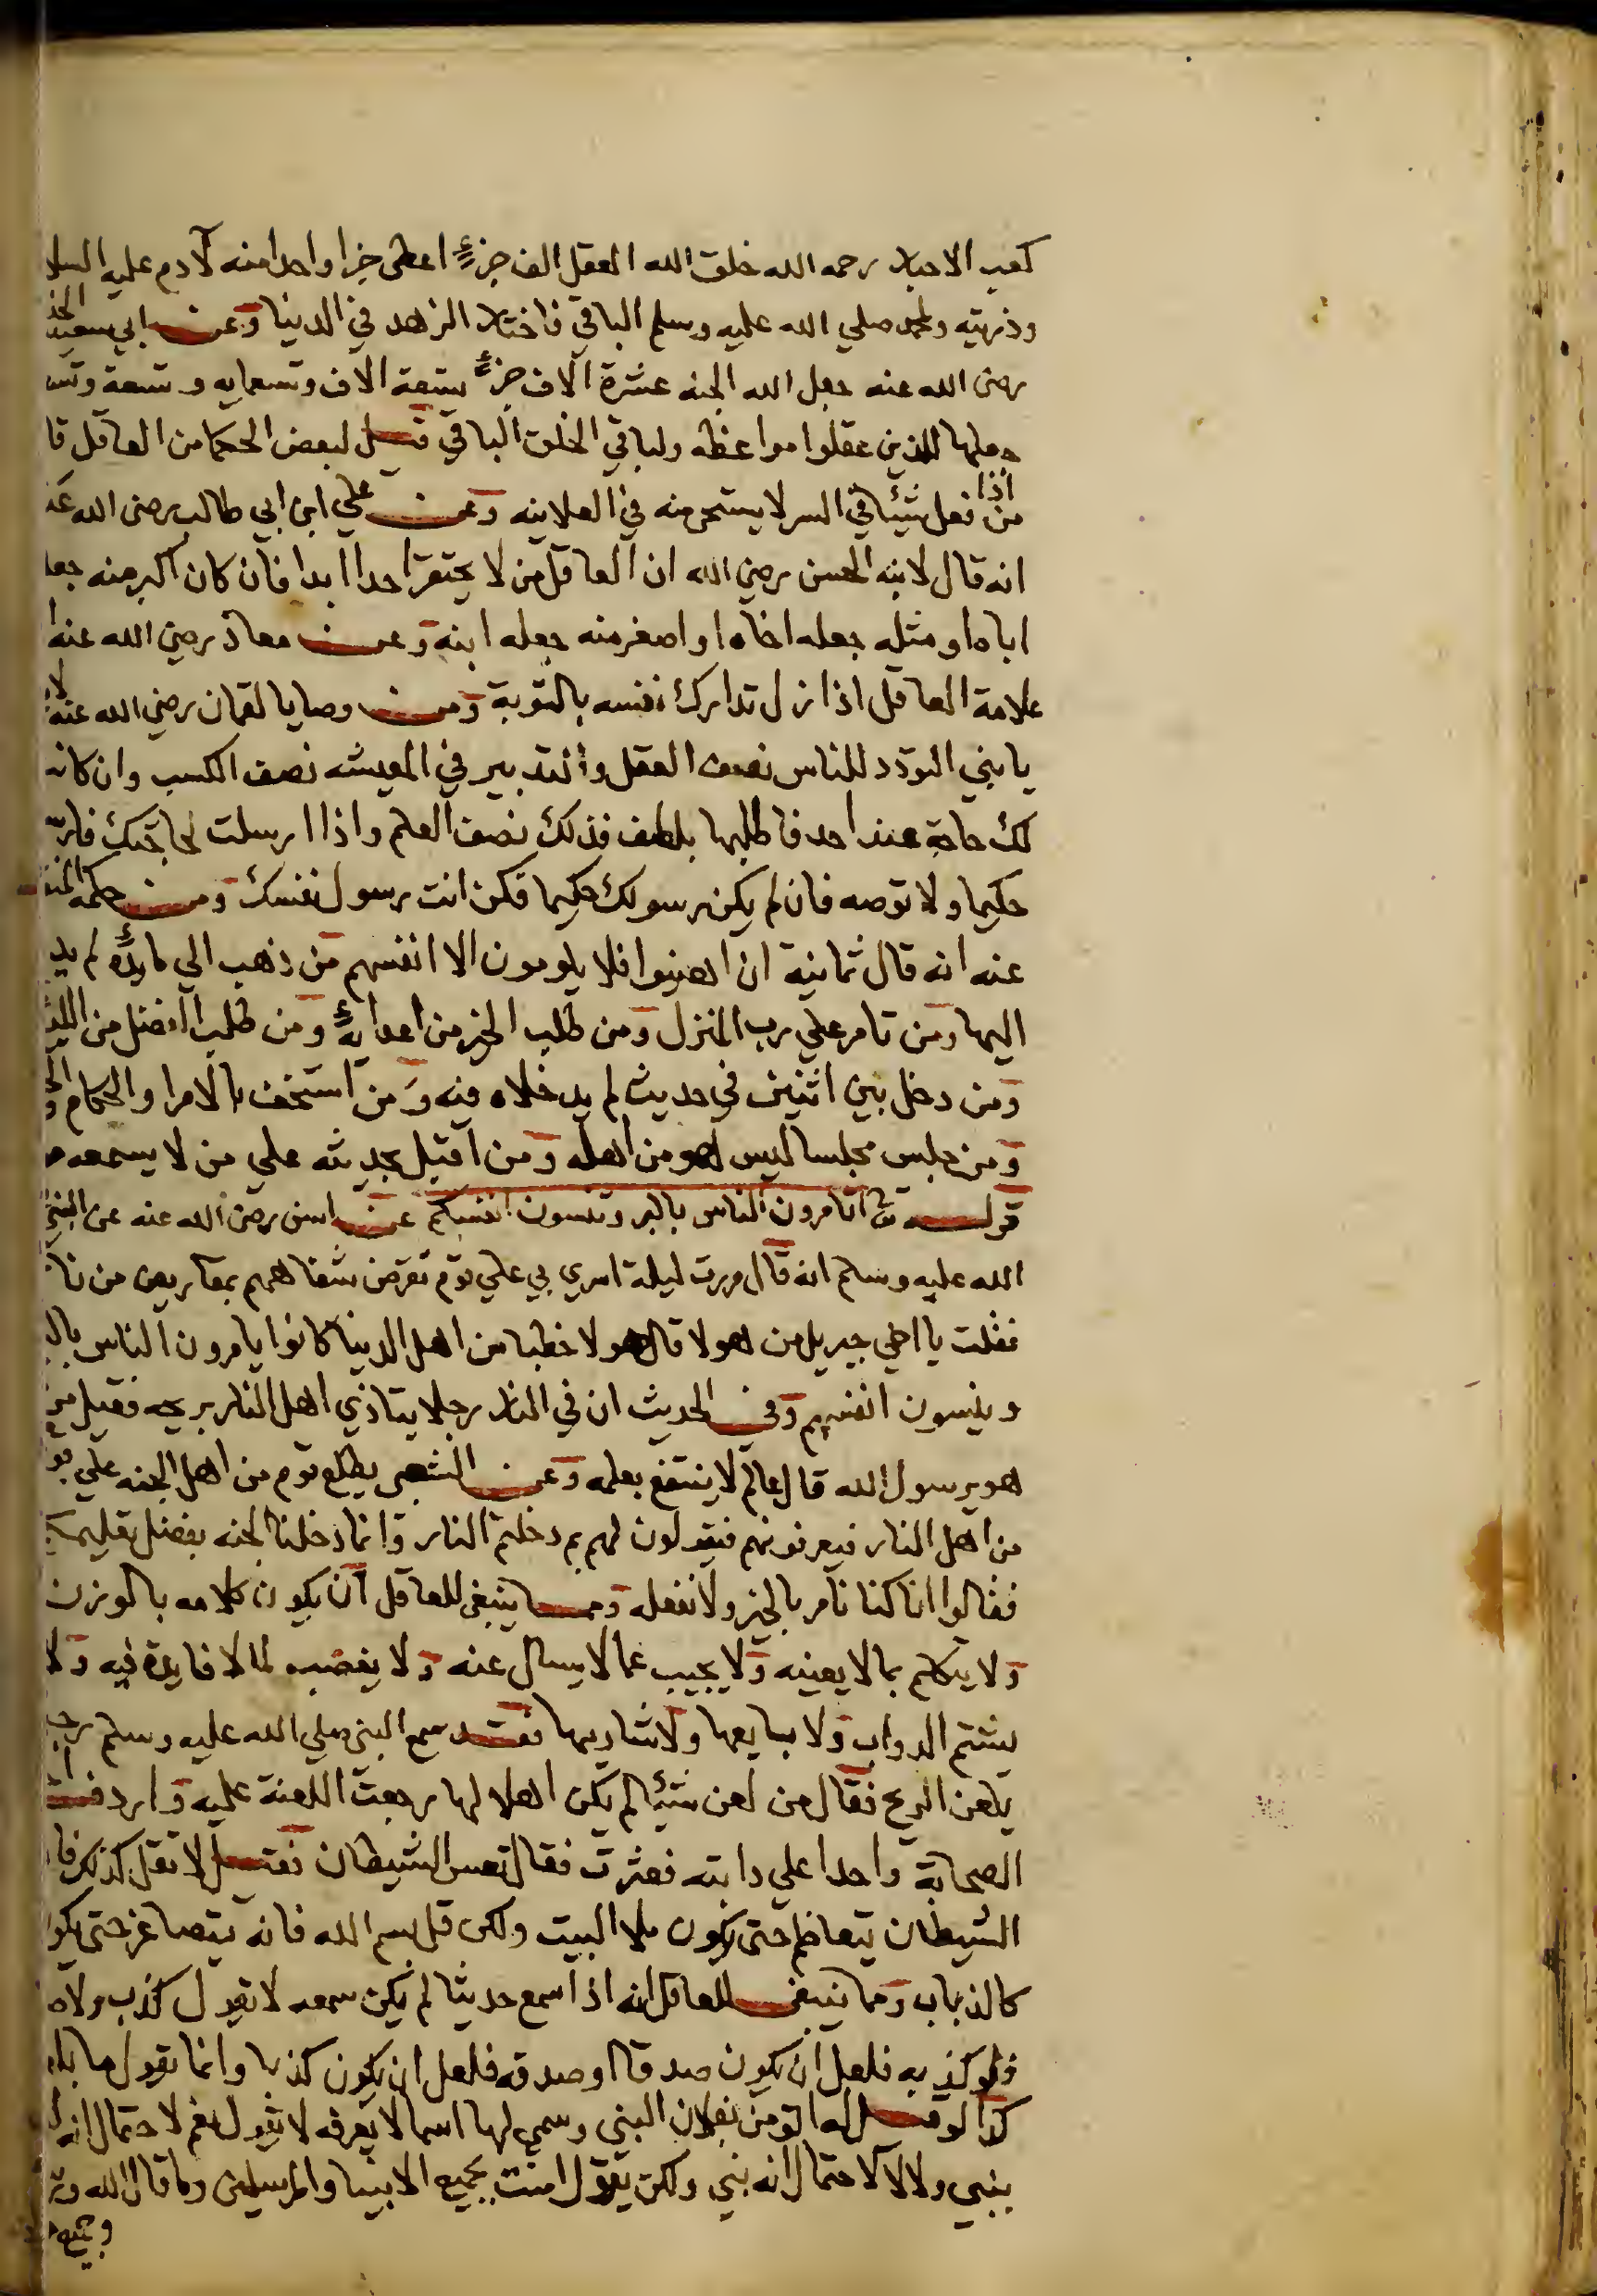 كعب الاحبار رحمه الله خلق الله العقل الف جزء اعطى جزا واحدا منه لآدم عليه السلا
وذريته ولمحمد صلي الله عليه وسلم الباقي فاختار الزهد في الدنيا وعن ابي سعيد الخد
رضى الله عنه جعل الله الجنه عشرة آلاف جزء تسعة الاف وتسعمايه وتسعة وتس
جعلها للذين عقلوا مواعظه ولباقي الخلق الباقي قيل لبعض الحكما من العاقل قا
من اذا فعل شيئا في السر لا يستحى منه في العلانيه وعن علي ابن ابي طالب رضى الله عنه
انه قال لابنه الحسن رضي الله ان العاقل من لا يحتقر احدا ابدا فان كان اكبر منه جعل
اباه او مثله جعله اخاه او اصغر منه جعله ابنه وعن معاذ رضي الله عنه
علامة العاقل اذا زل تدارك نفسه بالتوبة ومن وصايا لقمان رضي الله عنه لا
يا بني التودد للناس نصف العقل والتدبير في المعيشه نصف الكسب وان كان
لك حاجة عند احد فاطلبها بلطف فذلك نصف العلم واذا ارسلت لحاجتك فار
حكيما ولا توصه فان لم يكن رسولك حكيما فكن انت رسول نفسك ومن حكمه
عنه انه قال ثمانية ان اهينوا فلا يلومون الا انفسهم من ذهب الي مايدة لم يد
اليها ومن تامر علي رب المنزل ومن طلب الخير من اعدائه ومن طلب الفضل من اللئا
ومن دخل بين اثنين في حديث لم يدخلاه فيه ومن استخف بالامرا والحكام
ومن جلس مجلسا ليس هو من اهله ومن اقبل بحديثه علي من لا يسمعه
قوله تع اتامرون الناس بالبر وتنسون انفسكم عن انس رضى الله عنه عن النبي
الله عليه وسلم انه قال مررت ليلة اسري بي علي قوم تقرض شفاههم بمقاريض من نا
فقلت يا اخي جبريل من هولا قال هولا خطبا من اهل الدنيا كانوا يامرون الناس بال
وينسون انفسهم وفي الحديث ان في النار رجلا يتاذي اهل النار بريحه فقيل من
هو يرسول الله قال عالم لا ينتفع بعلمه وعن الشعبى يطلع قوم من اهل الجنه علي قو
من اهل النار فيعرفونهم فيقولون لهم بم دخلتم النار وانما دخلنا الجنه بفضل تعليمكم
فقالوا انا كنا نامر بالخير ولا نفعله ومما ينبغى للعاقل ان يكون كلامه بالوزن
ولا يتكلم بما لا يعنيه ولا يجيب عما لا يسال عنه ولا يغضب لما لا فايدة فيه ولا
يشتم الدواب ولا بايعها ولا شاريها فقد سمع النبى صلي الله عليه وسلم رجلا
يلعن الريح فقال من لعن شيئا لم يكن اهلا لها رجعت اللعنة عليه واردف
الصحابة واحدا علي دابته فعثرت فقال تعس الشيطان فقيل لا تقل كذلك فا
الشيطان يتعاظم حتى يكون ملا البيت ولكن قل بسم الله فانه يتصاغر حتى يكو
كالذباب ومما ينبغى للعاقل انه اذا سمع حديثا لم يكن سمعه لا يقول كذب ولا
فلو كذبه فلعل ان يكون صدقا او صدقه فلعل ان يكون كذبا وانما يقول
كذا لو قيل له اتومن بفلان النبي وسمي لها اسما لا يعرفه لا يقول نعم لاحتمال انه
بنبي ولا لا لاحتمال انه نبي ولكن يقول امنت بجميع الانبيا والمرسلين وما قال الله